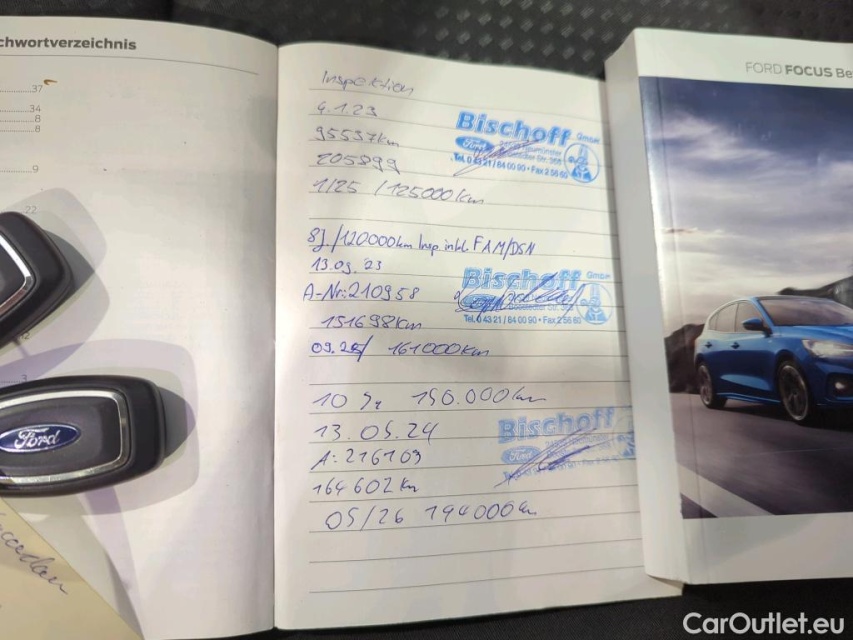 chwortverzeichnis
37
34
8
8
9
22
3
Ford
Inspektion
4.1.23
95537km
205899
1/25 /125000km
Bischoff GmbH
Ford
Tel. 0 43 21/84 00 90 • Fax 2 56 60
8J/120000km Insp. inkl. FAM/DSN
13.09.23
A-Nr.:210958
151698km
09.25/ 161000km
Bischoff GmbH
Tel. 0 43 21/84 00 90 • Fax 2 56 60
10 Ja 150.000km
13.05.24
A: 216109
164602km
05/26 194000km
Bischoff
Ford
FORD FOCUS Be
CarOutlet.eu